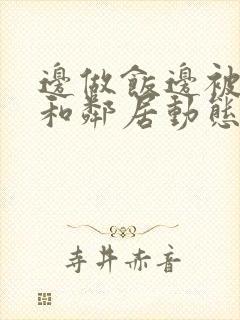 邊做飯邊被
和鄰居動態
寺井赤音